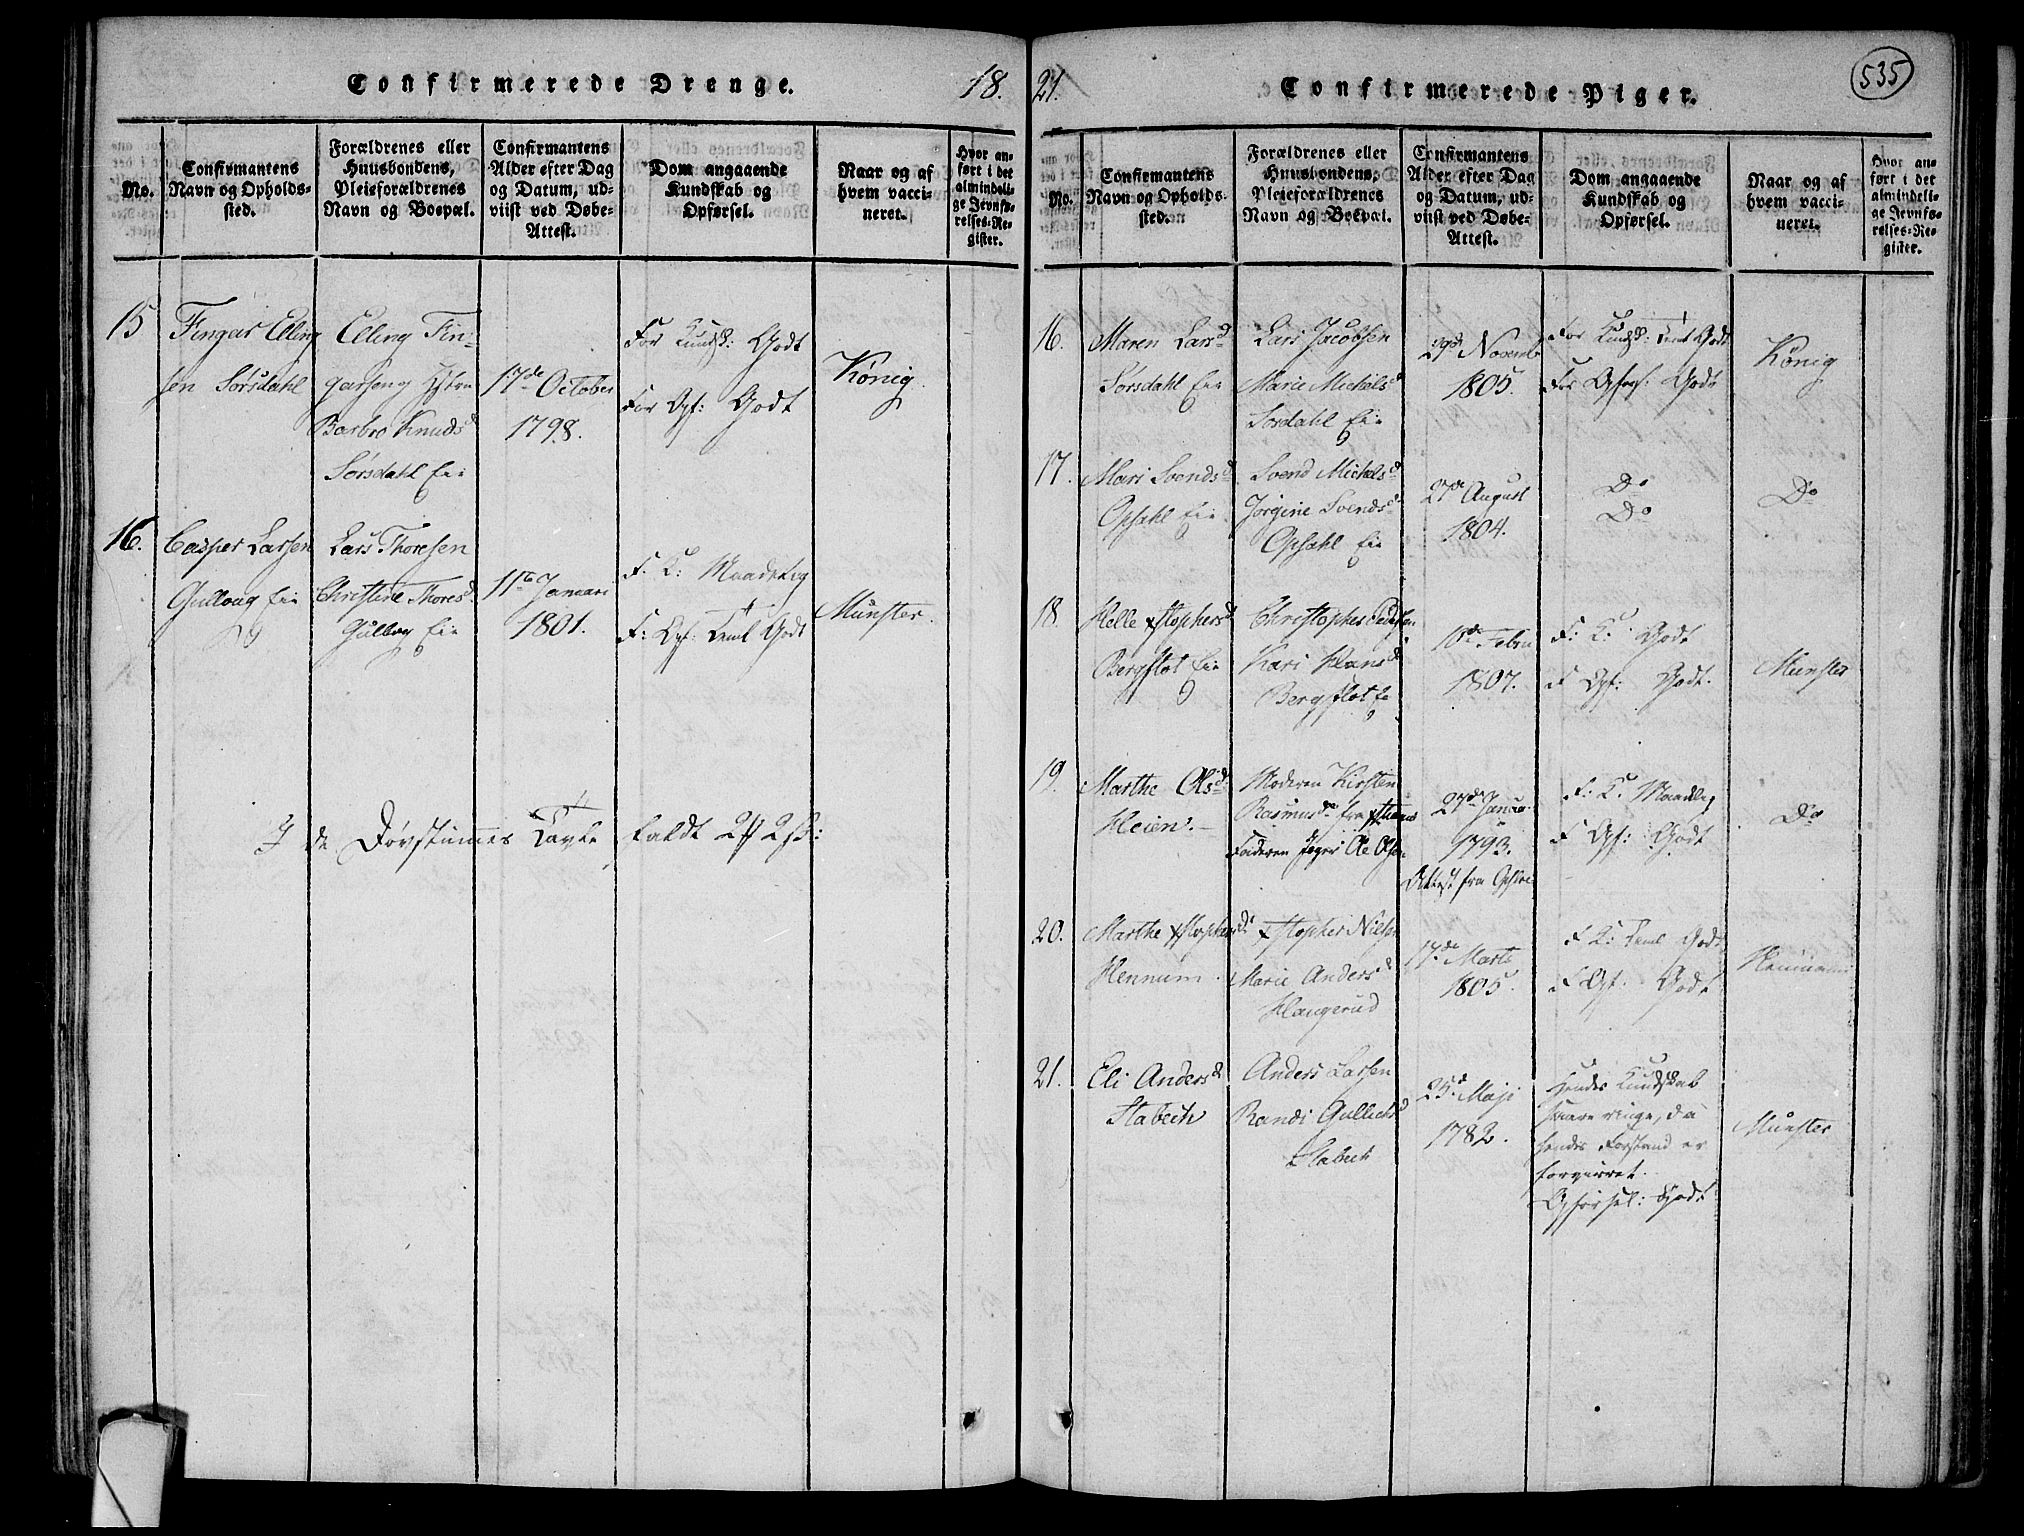 Confirmerede Drenge.
18.
No.
Confirmantens
Navn og Opholds-
sted.
Forældrenes eller
Huusbondens,
Pleieforældrenes
Navn og Boepæl.
Confirmantens
Alder efter Dag
og Datum, ud-
viist ved Døbe-
Attest.
Dom angaaende
Kundskab og
Opførsel.
Naar og af
hvem vacci-
neret.
Hvor an-
ført i det
almindeli-
ge Jevnfø-
relses-Re-
gister.
15
Fingar Elling
sen Sørsdahl
Elling Fin-
garseng
Barbro Knudsd
Sørsdahl Eie
17de October
1798.
For Kundsk: Godt
For Opf: Godt
König
16.
Casper Larsen
Gullaug Eie
Lars Thoresen
Christine Thoresd
Gullaug Eie
11te Januari
1801.
F. K: Maadelig
F: Opf: Teml Godt
Münster.
I de Døvstummes Tavle faldt
21.
Confirmerede Piger.
535
No.
Confirmantens
Navn og Opholds-
sted.
Forældrenes eller
Huusbondens,
Pleieforældrenes
Navn og Boepæl.
Confirmantens
Alder efter Dag
og Datum, ud-
viist ved Døbe-
Attest.
Dom angaaende
Kundskab og
Opførsel.
Naar og af
hvem vacci-
neret.
Hvor an-
ført i det
almindeli-
ge Jevnfø-
relses-Re-
gister.
16.
Maren Larsd
Sørsdahl Eie
Lars Jacobsen
Marie Michelsd
Sørdahl Eie
29de Novemb
1805.
For Kundsk: Teml Godt
For Opførs: Godt
König
17.
Mari Svendsd
Opsahl Eie
Svend Michels
Jørgine Svendsd
Opsahl Eie
27de August
1804.
Do
Do
Do
18.
Helle Xstophersd
Bergflot Eie
Christopher Pedersen
Kari Hansd
Bergflot Eie
10de Febru
1807.
F: K: Godt
F Opf: Godt.
Münster
19.
Marthe Olsd
Heien.
Moderen Kirsten
Rasmusd fra
Faderen Jeger Ole Olsen
27de Janua
1793.
Attest fra
F: K: Maadelig
F Opf: Godt
Do
20.
Marthe Xstophersd
Hennum.
Xstopher Nielsen
Marie Andersd
Haugerud
17de Marts
1805.
F K: Teml Godt
F Opf. Godt
21.
Eli Andersd
Stabech
Anders Larsen
Randi Gullichsd
Stabech
25de Maji
1782.
Hendes Kundskab
saare ringe, da
hendes Forstand er
forvirret.
Opførsel: Godt
Münster